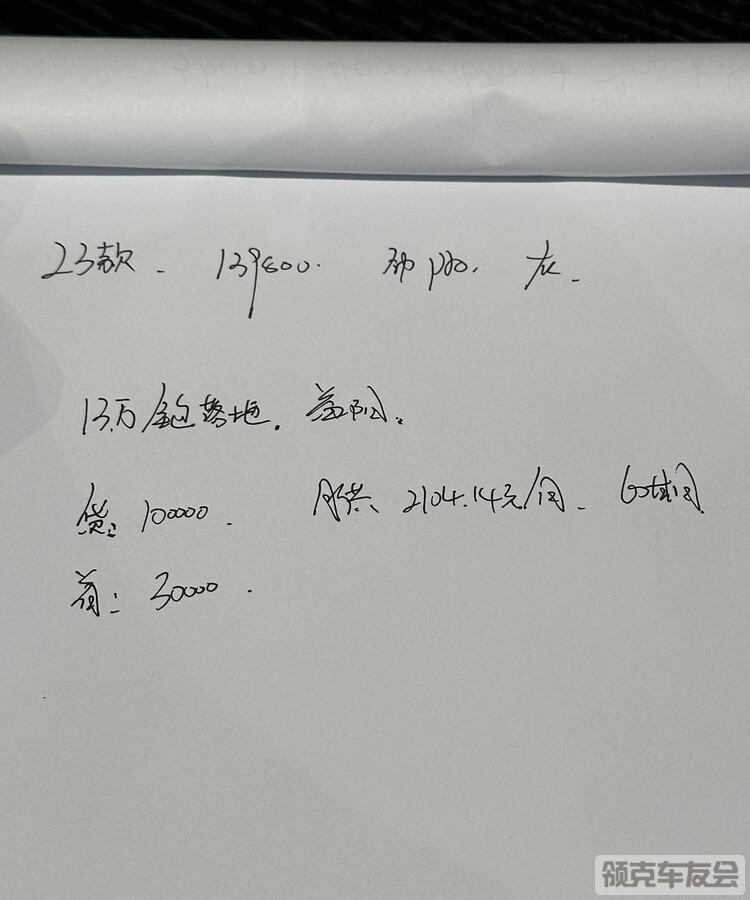 23款. 139800. 劲pro. 灰.
13万全包落地.
贷: 100000. 月供 2104.14元/月. 60期
首: 30000.
领克车友会